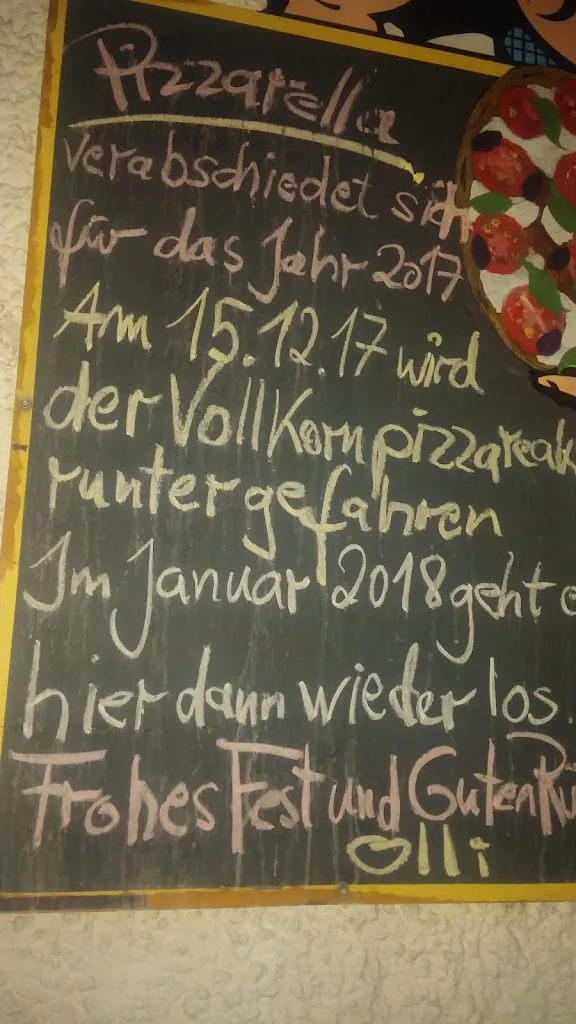 Pizzarella
verabschiedet sich
für das Jahr 2017
Am 15.12.17 wird
der Vollkornpizzareak
runtergefahren
Im Januar 2018 geht e
hier dann wieder los.
Frohes Fest und Guten Ru
Olli